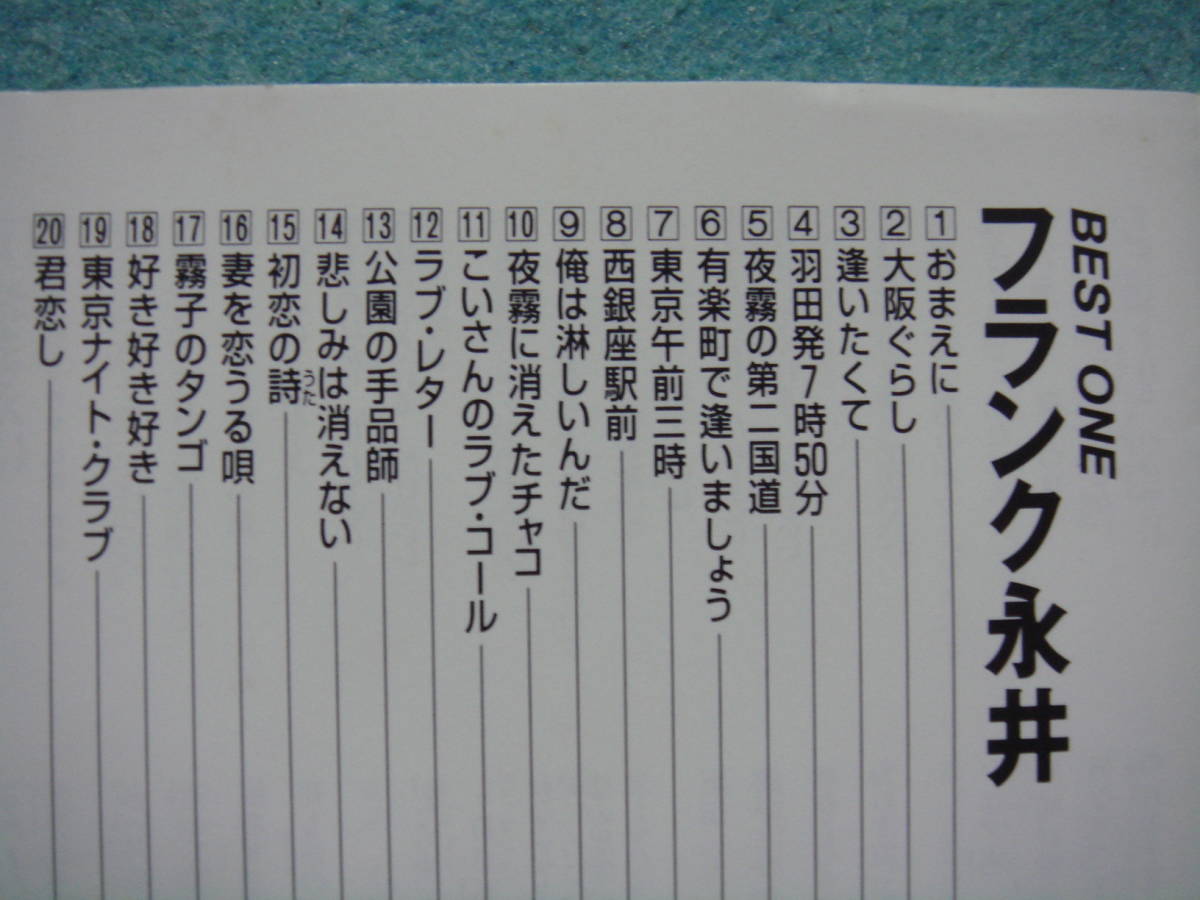 BEST ONE
フランク永井
1 おまえに
2 大阪ぐらし
3 逢いたくて
4 羽田発7時50分
5 夜霧の第二国道
6 有楽町で逢いましょう
7 東京午前三時
8 西銀座駅前
9 俺は淋しいんだ
10 夜霧に消えたチャコ
11 こいさんのラブ・コール
12 ラブ・レター
13 公園の手品師
14 悲しみは消えない
15 初恋の詩
うた
16 妻を恋うる唄
17 霧子のタンゴ
18 好き好き好き
19 東京ナイト・クラブ
20 君恋し